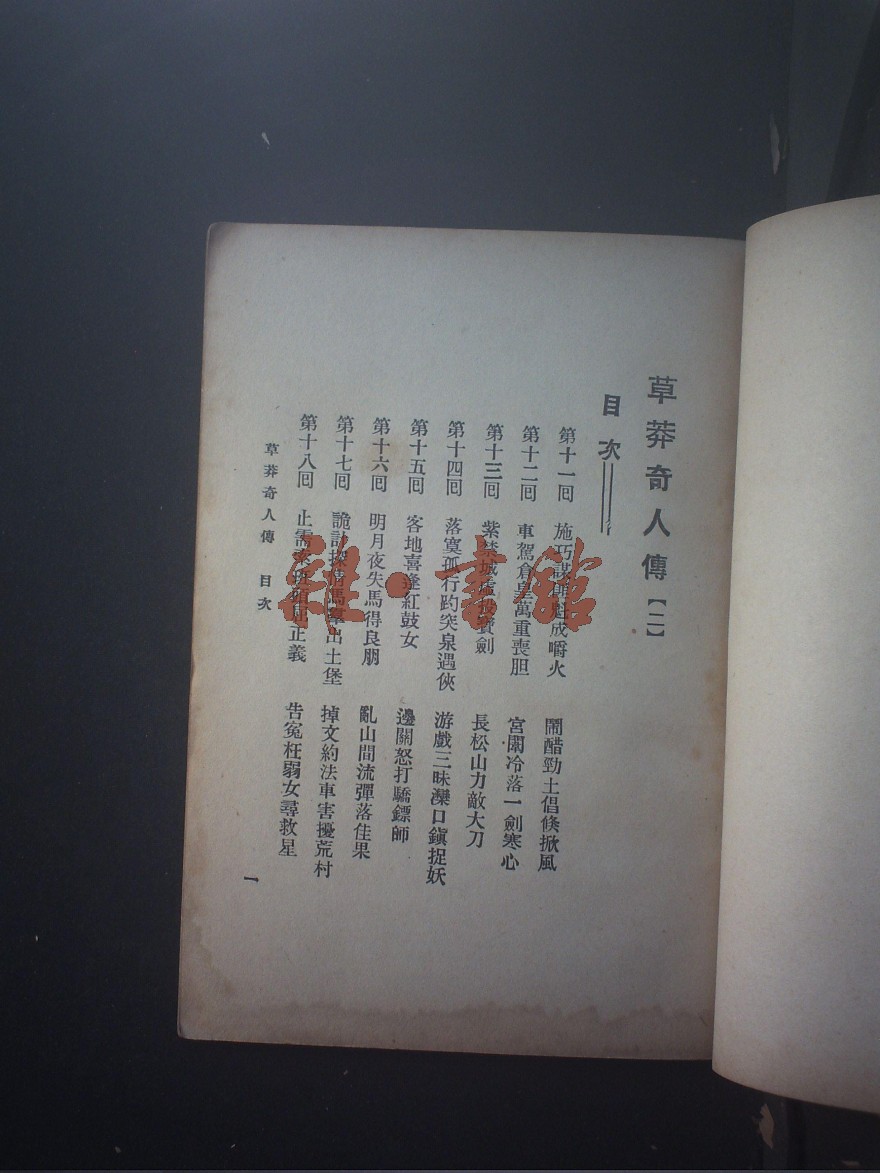 草莽奇人傳【二】
目次
第十一回 施巧謀 魁成嚼火 鬧醋勁土倡倏掀風
第十二回 車駕倉皇萬重喪胆 宮闈冷落一劍寒心
第十三回 紫禁城虛投寶劍 長松山力敵大刀
第十四回 落寞孤行趵突泉遇俠 游戲三昧灤口鎮捉妖
第十五回 客地喜逢紅鼓女 邊關怒打驕鏢師
第十六回 明月夜失馬得良朋 亂山間流彈落佳果
第十七回 詭計探情馬羣出土堡 掉文約法車害擾荒村
第十八回 止需索 正義 告冤枉弱女尋救星
草莽奇人傳 目次
一
雜·書館